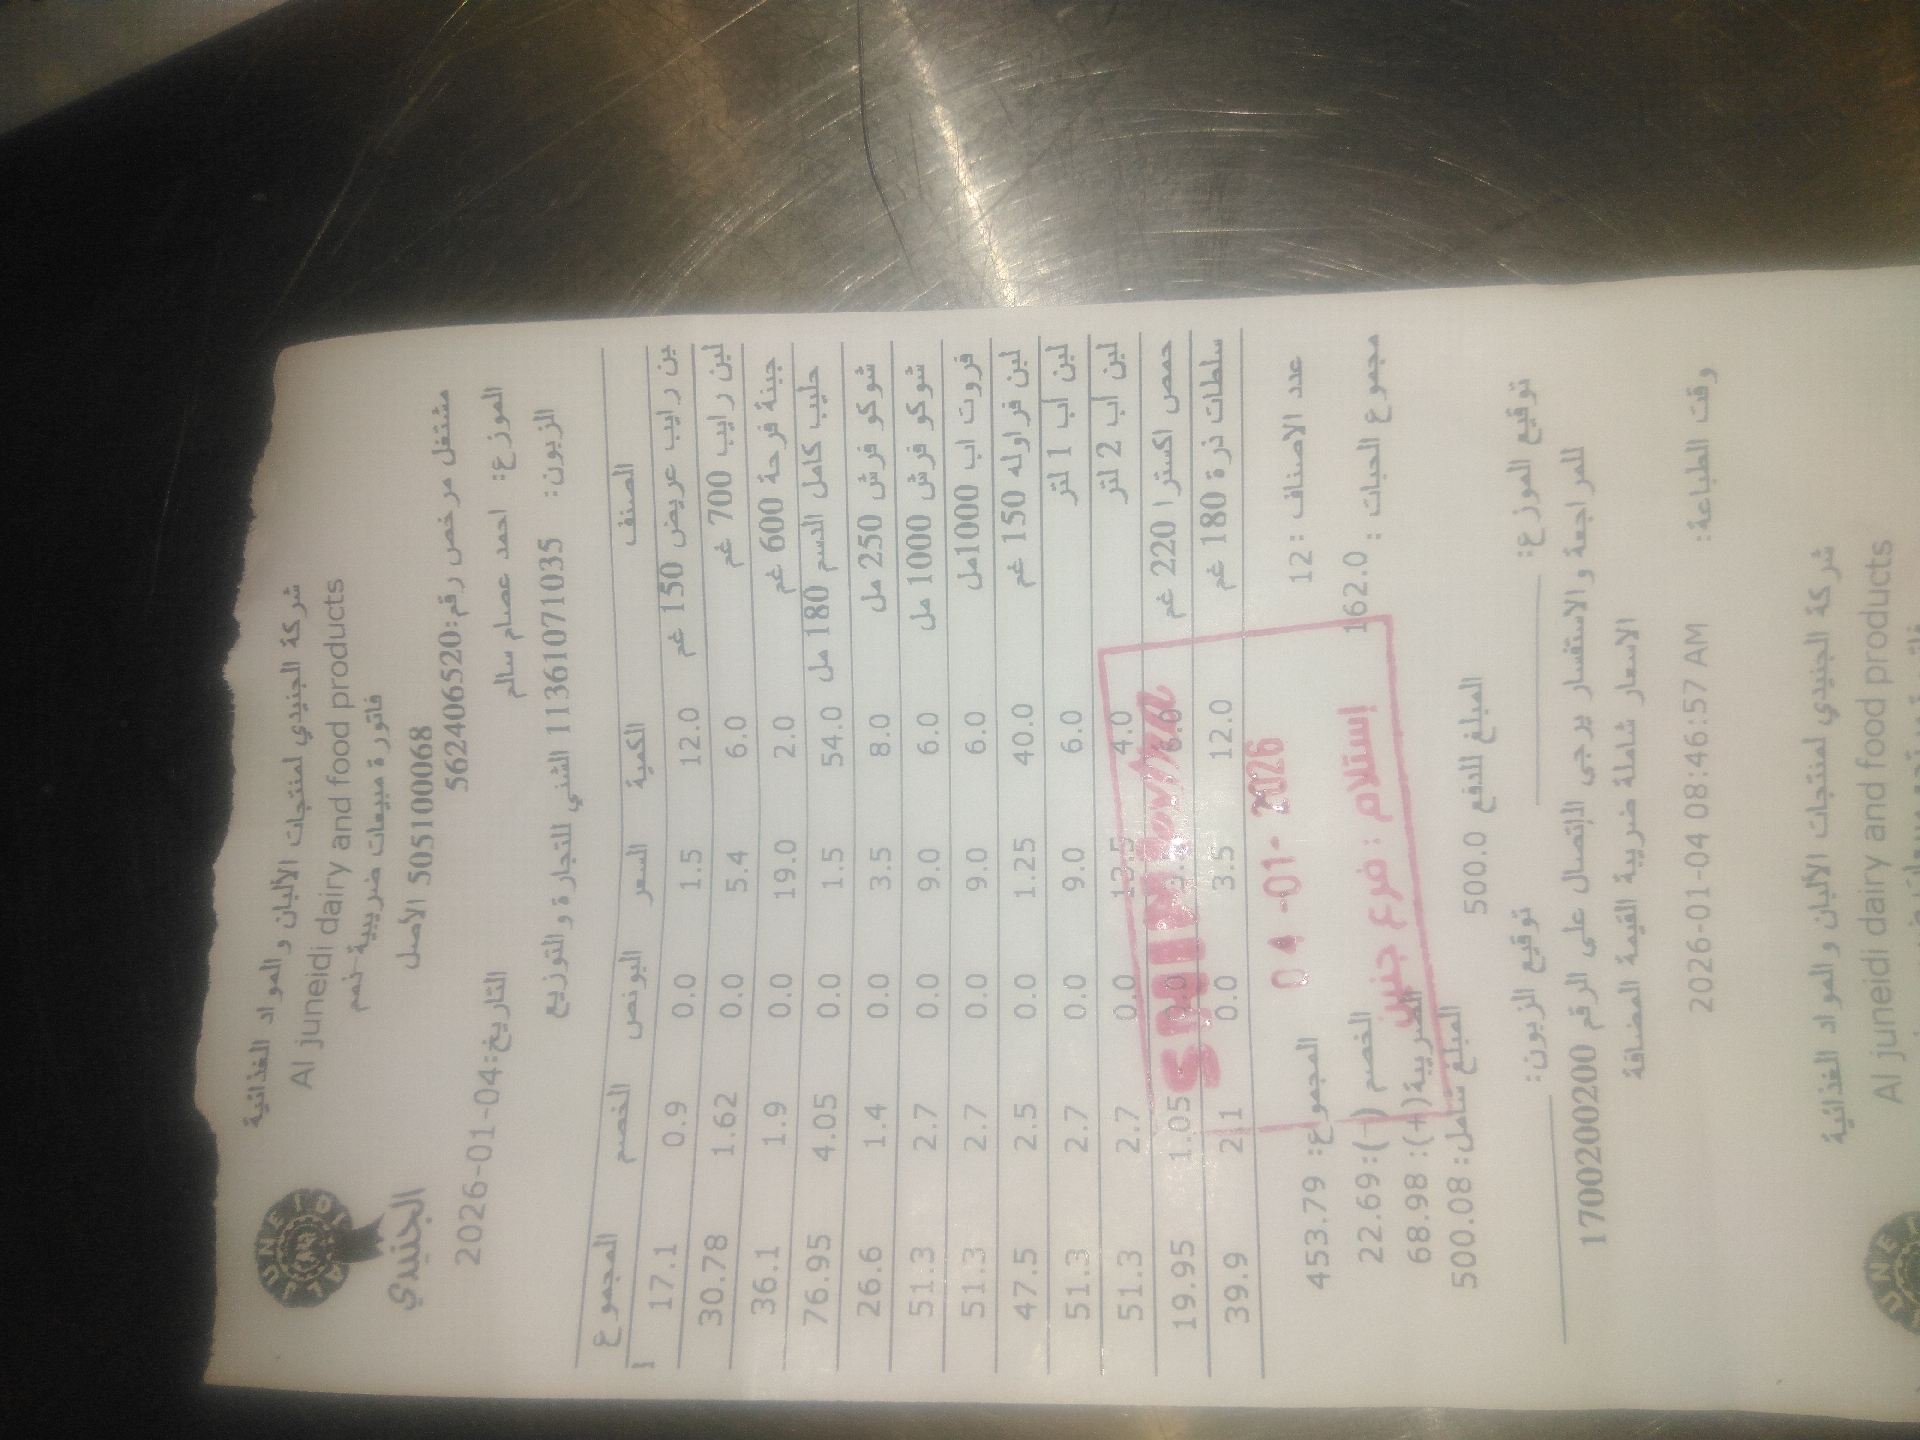 شركة الجنيدي لمنتجات الألبان والمواد الغذائية
Al juneidi dairy and food products
فاتورة مبيعات ضريبية-نمم
505100068 الأصل
JUNEIDI
الجنيدي
مشتغل مرخص رقم:562406520
الموزع: احمد عصام سالم
التاريخ:2026-01-04
الزبون: 11361071035 الشني للتجارة والتوزيع
الصنف الكمية السعر البونص الخصم المجموع
بن رايب عريض 150 غم 12.0 1.5 0.0 0.9 17.1
لبن رايب 700 غم 6.0 5.4 0.0 1.62 30.78
جبنة فرحة 600 غم 2.0 19.0 0.0 1.9 36.1
حليب كامل الدسم 180 مل 54.0 1.5 0.0 4.05 76.95
شوكو فرش 250 مل 8.0 3.5 0.0 1.4 26.6
شوكو فرش 1000 مل 6.0 9.0 0.0 2.7 51.3
فروت اب 1000مل 6.0 9.0 0.0 2.7 51.3
لبن فراوله 150 غم 40.0 1.25 0.0 2.5 47.5
لبن اب 1 لتر 6.0 9.0 0.0 2.7 51.3
لبن اب 2 لتر 4.0 13.5 0.0 2.7 51.3
حمص اكسترا 220 غم 6.0 0.0 1.05 19.95
سلطات ذرة 180 غم 12.0 3.5 0.0 2.1 39.9
SHINI
04 -01- 2026
إستلام : فرع جنين
عدد الاصناف : 12
المجموع: 453.79
مجموع الحبات : 162.0
الخصم (-):22.69
الضريبة(+): 68.98
المبلغ شامل: 500.08
المبلغ للدفع 500.0
توقيع الموزع:
توقيع الزبون:
للمراجعة والاستفسار يرجى الاتصال على الرقم 1700200200
الاسعار شاملة ضريبة القيمة المضافة
وقت الطباعة: 2026-01-04 08:46:57 AM
شركة الجنيدي لمنتجات الألبان والمواد الغذائية
Al juneidi dairy and food products